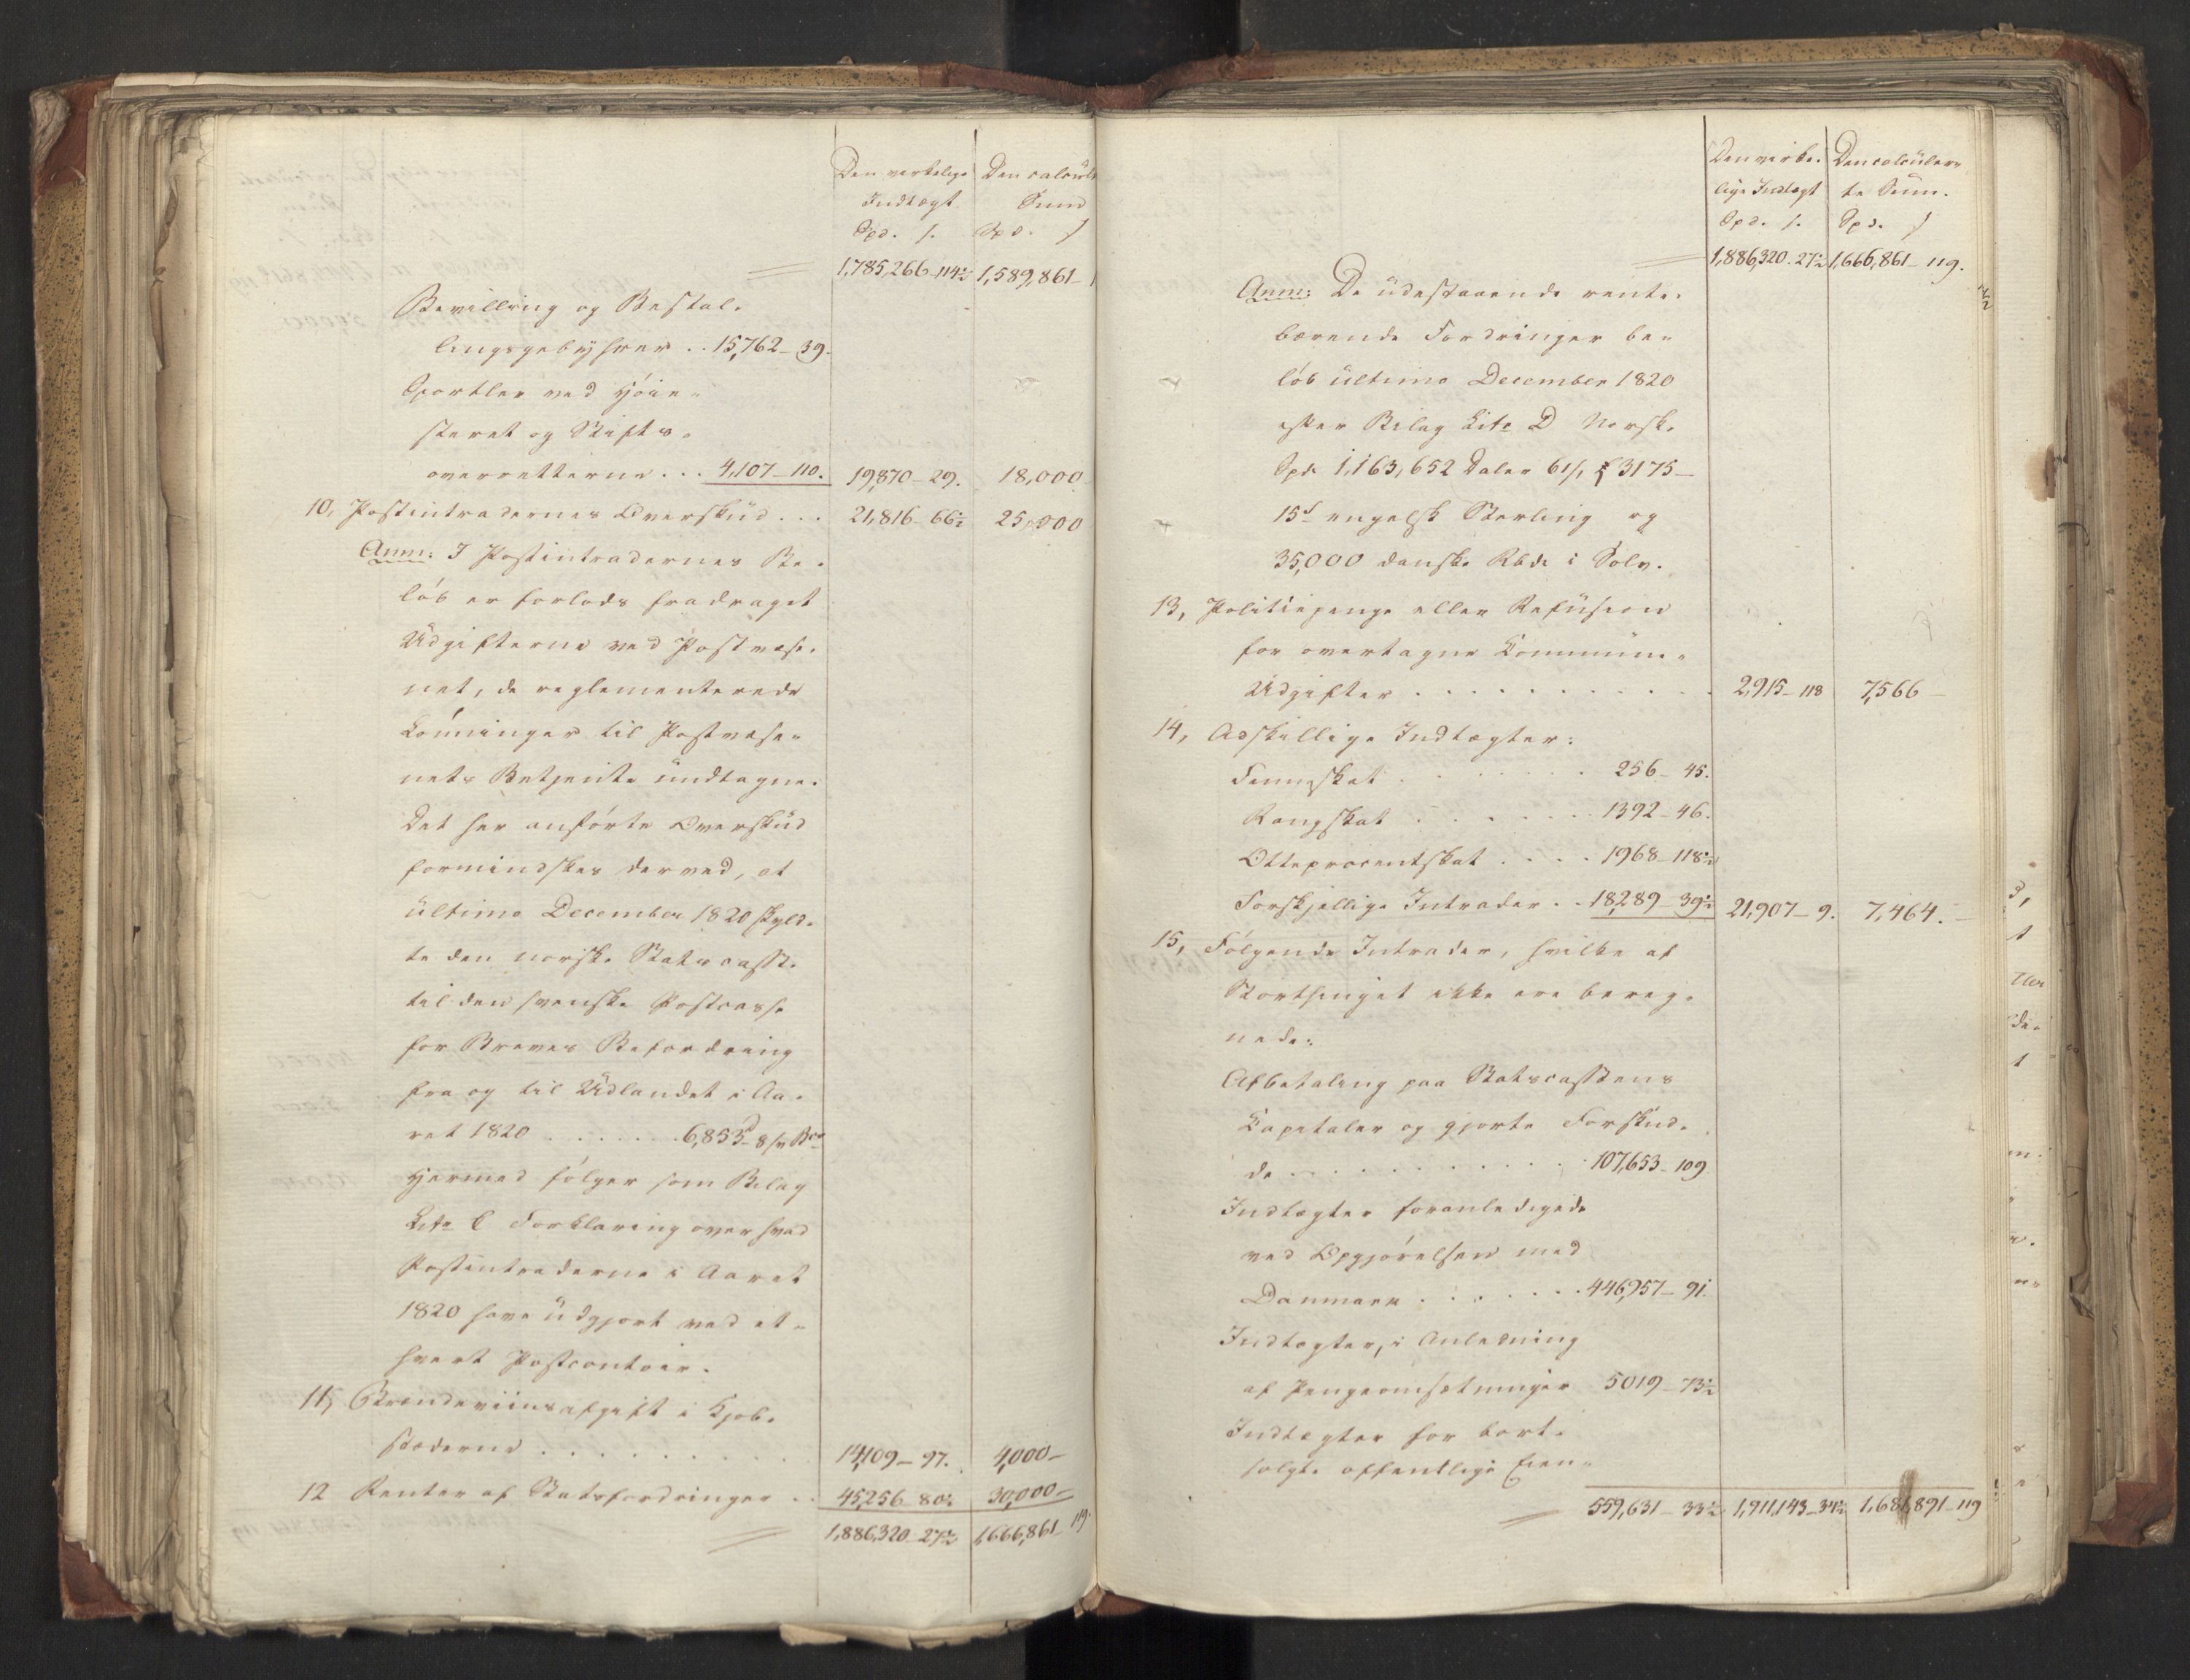 Den virkelige Den calcul
Indtægt Sum
Spd. s. Spd. s
1,785,266_114½ 1,589,861_
Bevilling og Bestal-
lingsgebyhrer .. 15,762_39.
Sportler ved Høie-
steret og Stifts-
overretterne ... 4,107_110. 19,870_29. 18,000
10, Postintradernes Overskud ... 21,816_66½ 25,000
Anm: I Postintradernes Be-
løb er forlods fradraget
Udgifterne ved Postvæse-
net, de reglementerede
Lønninger til Postvæse-
nets Betjente undtagne.
Det her anførte Overskud
formindskes derved, at
ultimo December 1820 skyld-
te den norske Statscasse
til den svenske Postcasse
for Breves Befordring
fra og til Udlandet i Aa-
ret 1820 ....... 6,853d_8 s Bco
Hermed følger som Bilag
Litr C Forklaring over hvad
Postintraderne i Aaret
1820 have udgjort ved et-
hvert Postcontoir.
11, Brændeviinsafgift i Kjøb-
stæderne ......... 14,109_97. 4,000_
12 Renter af Statsfordringer .. 45,256_80½ 30,000_
1,886,320_27½ 1,666,861_119.
Den virke- Den calculer-
lige Indtægt te Sum.
Spd. s. Spd. s
1,886,320_27½ 1,666,861_119.
Anm: De udestaaende rente-
bærende Fordringer be-
løb ultimo December 1820
efter Bilag Litr D Norsk.
Spd. 1,163,652 Daler 61 s, £ 3175_
15s engelsk Sterling og
35,000 danske Rbd. i Sølv.
13, Politiepenge eller Refusion
for overtagne Kommune-
Udgifter ........... 2,915_118 7,566_
14, Adskillige Indtægter:
Finneskat ....... 256_45.
Rangskat ...... 1392_46.
Otteprocentskat .... 1968_118½
Forskjellige Intrader .. 18,289_39½ 21,907_9. 7,464._
15, Følgende Intrader, hvilke af
Storthinget ikke ere bereg-
nede:
Afbetaling paa Statscassens
Kapitaler og gjorte Forskud-
de .......... 107,653_109
Indtægter foranledigede
ved Opgjørelsen med
Danmark ....... 446,957_91.
Indtægter, i Anledning
af Pengeomsetninger 5019_73½
Indtægter for bort-
solgte offentlige Eien-
559,631_33½ 1,911,143_34½ 1,681,891_119